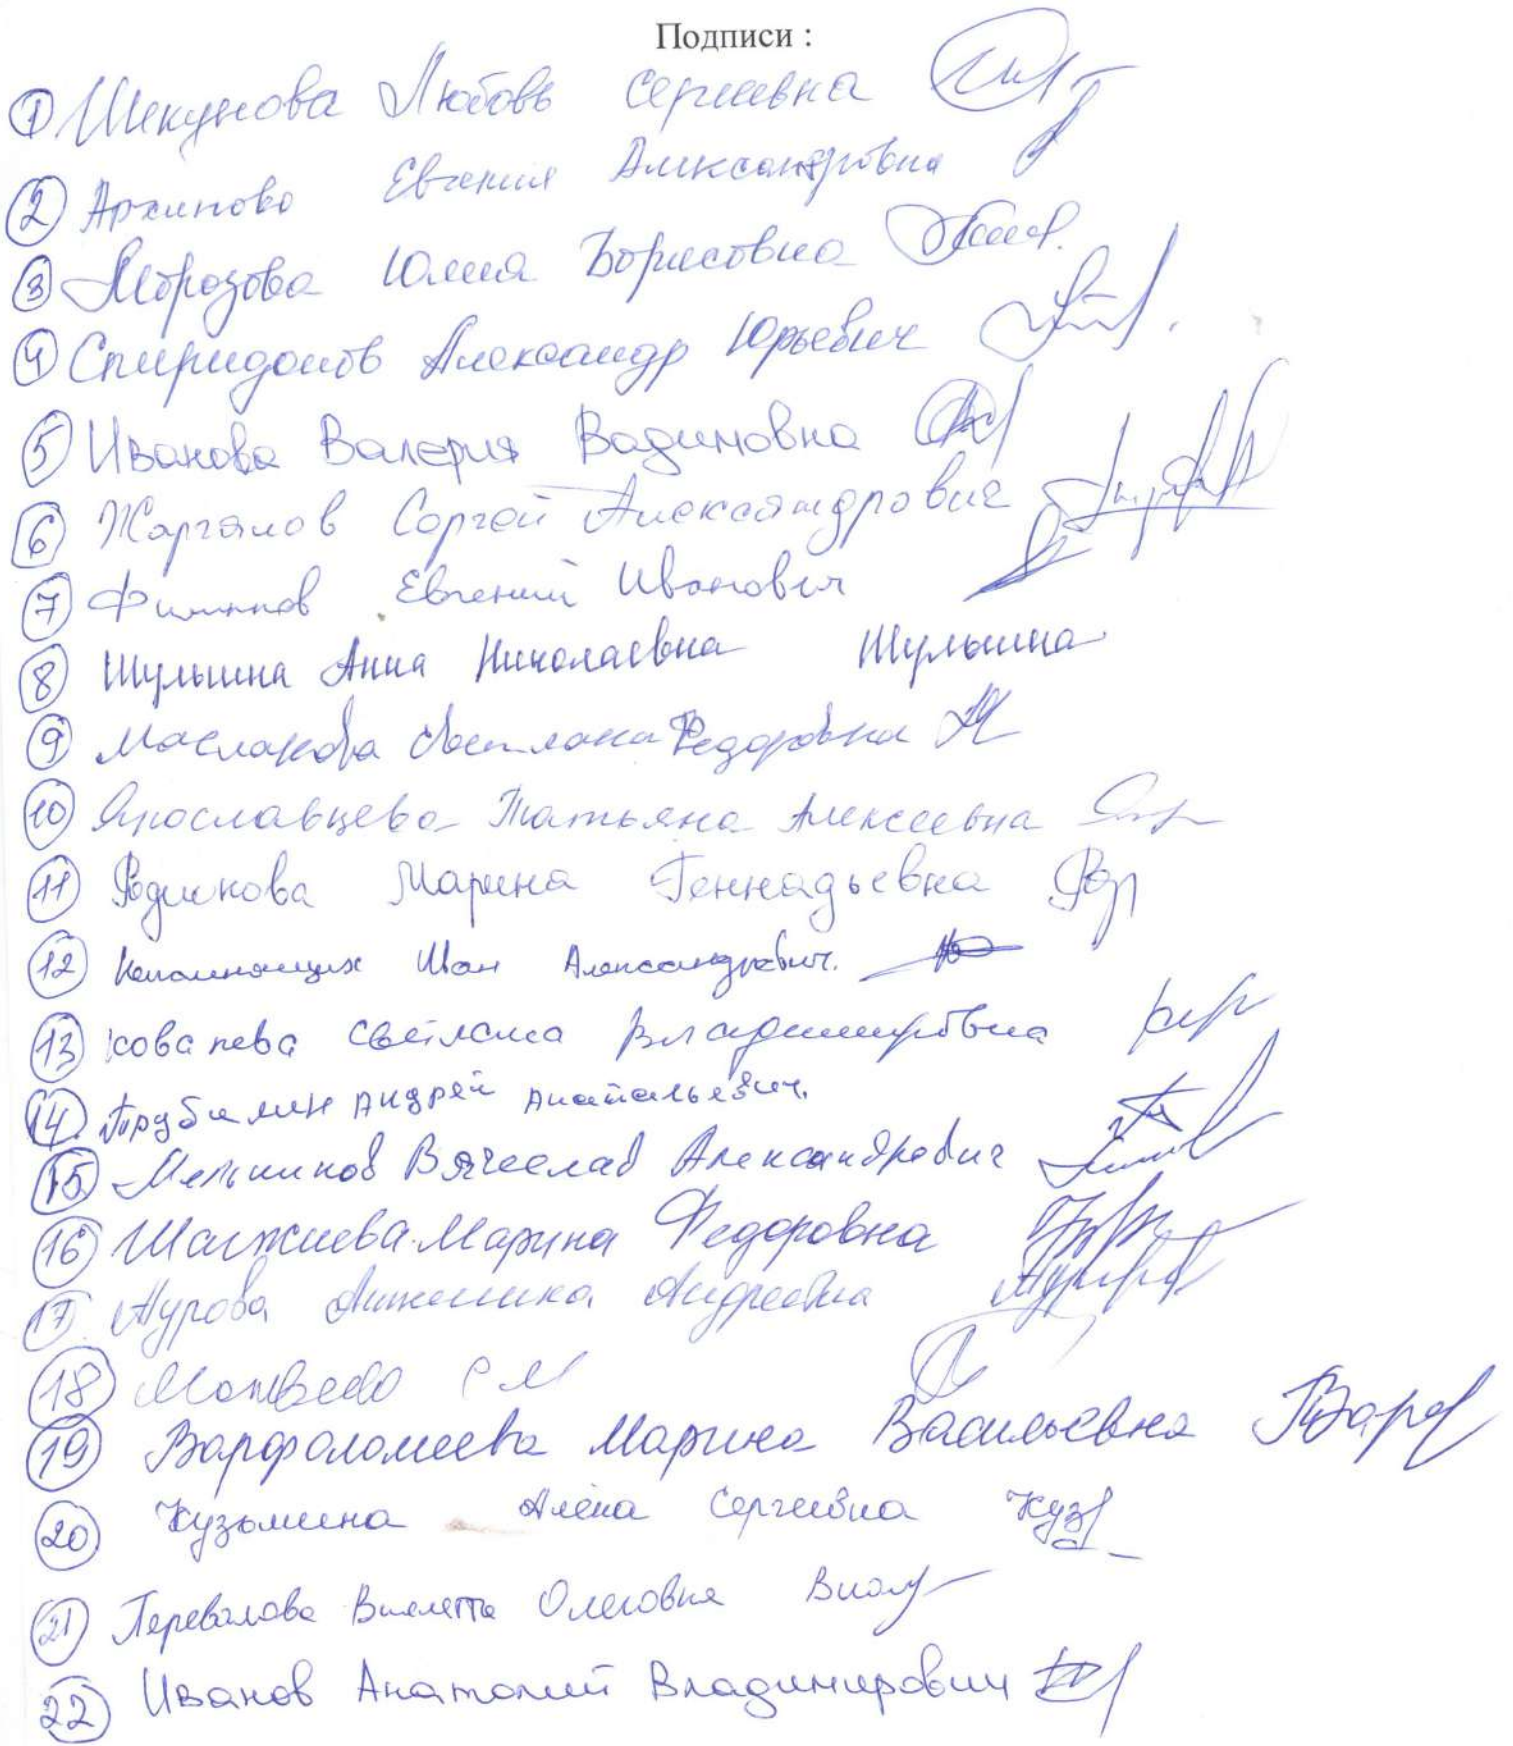 Подписи :
1 Шекунова Любовь Сергеевна
2 Архипова Евгения Александровна
3 Морозова Юлия Борисовна
4 Спиридонов Александр Юрьевич
5 Иванова Валерия Вадимовна
6 Жаргалов Сергей Александрович
7 Филиппов Евгений Иванович
8 Шульгина Анна Николаевна
9 Маслакова Светлана Федоровна
10 Ярославцева Татьяна Алексеевна
11 Родионова Марина Геннадьевна
12 Непомнящих Иван Александрович.
13 Ковалева Светлана Владимировна
14 Андрей Анатольевич.
15 Мельников Вячеслав Александрович
16 Шагжиева Марина Федоровна
17 Аурова Анжелика Андреевна
18 Матвеева С М
19 Варфоломеева Марина Васильевна
20 Кузьмина Алёна Сергеевна Куз
21 Перевалова Виолетта Олеговна
22 Иванов Анатолий Владимирович